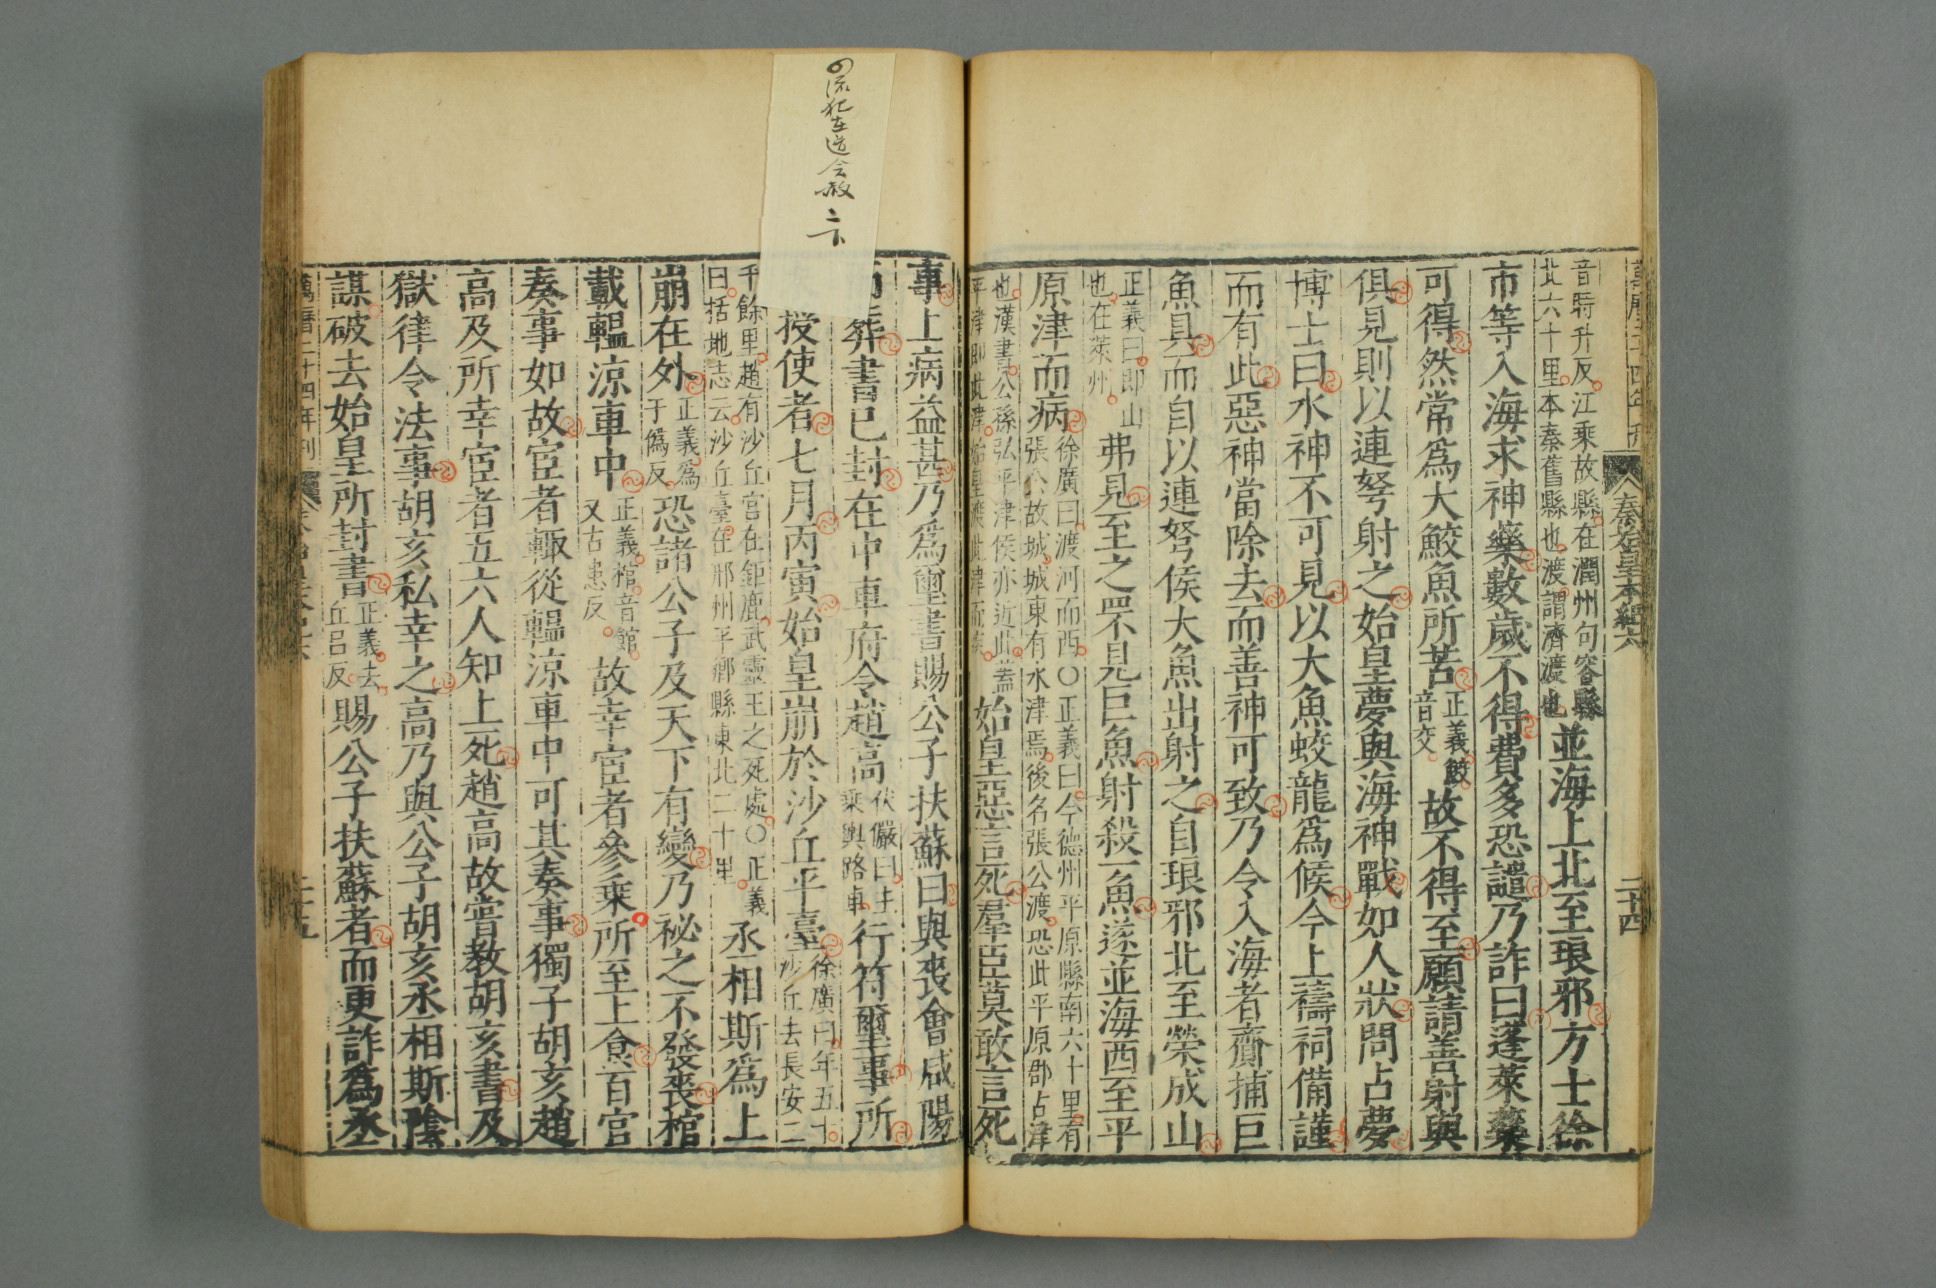 秦始皇本紀六
二十四
音時升反江乘故縣在潤州句容縣
北六十里本秦舊縣也渡謂濟渡也
並海上北至琅邪方士徐
市等入海求神藥數歲不得費多恐譴乃詐曰蓬萊藥
可得然常爲大鮫魚所苦
正義鮫
音交
故不得至願請善射與
俱見則以連弩射之始皇夢與海神戰如人狀問占夢
博士曰水神不可見以大魚蛟龍爲候今上禱祠備謹
而有此惡神當除去而善神可致乃令入海者齎捕巨
魚具而自以連弩候大魚出射之自琅邪北至榮成山
正義曰即山
也在萊州
弗見至之罘見巨魚射殺一魚遂並海西至平
原津而病
徐廣曰渡河而西〇正義曰今德州平原縣南六十里有
張公故城城東有水津焉後名張公渡恐此平原郡占津
也漢書公孫弘平津侯亦近此蓋
平津即此津始皇
始皇惡言死羣臣莫敢言死
事上病益甚乃爲璽書賜公子扶蘇曰與喪會咸陽
葬書已封在中車府令趙高
伏儼曰主
乘輿路車
行符璽事所
授使者七月丙寅始皇崩於沙丘平臺
徐廣曰年五十
沙丘去長安二
千餘里趙有沙丘宮在鉅鹿武靈王之死處〇正義
曰括地志云沙丘臺在邢州平鄉縣東北二十里
丞相斯爲上
崩在外
正義爲
于僞反
恐諸公子及天下有變乃祕之不發喪棺
載輼涼車中
正義棺音館
又古患反
故幸宦者參乘所至上食百官
奏事如故宦者輒從輼涼車中可其奏事獨子胡亥趙
高及所幸宦者五六人知上死趙高故嘗教胡亥書及
獄律令法事胡亥私幸之高乃與公子胡亥丞相斯陰
謀破去始皇所封書
正義去
丘呂反
賜公子扶蘇者而更詐爲丞
萬曆二十四年刊
二十五